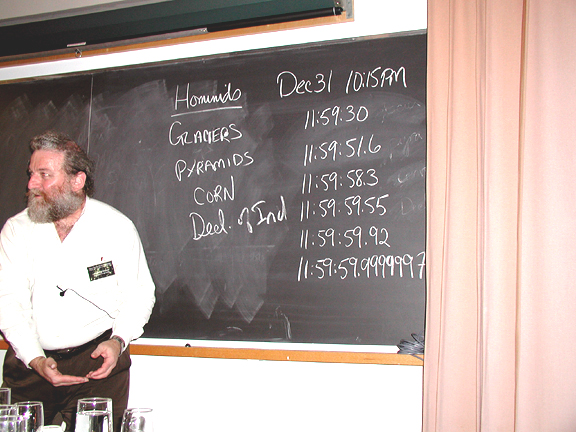 Hominids Dec 31 10:15PM
GLACIERS 11:59:30
PYRAMIDS 11:59:51.6
CORN 11:59:58.3
Decl. of Ind 11:59:59.55
11:59:59.92
11:59:59.9999997